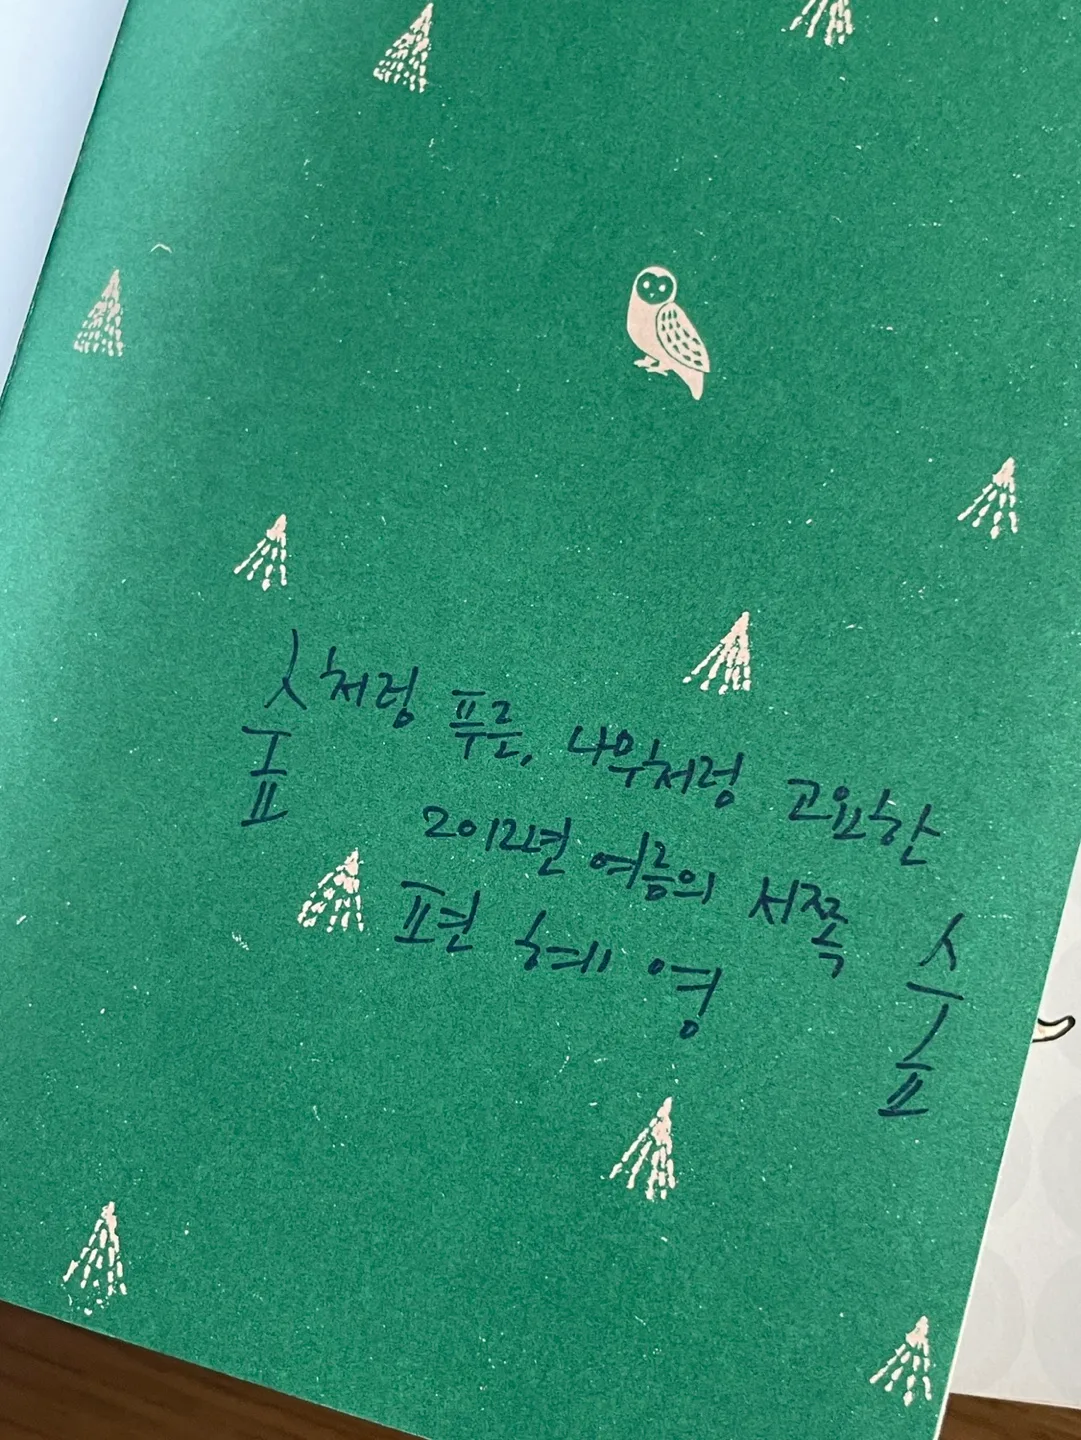 숲처럼 푸른, 나무처럼 고요한
2012년 여름의 서쪽 숲
편 혜 영